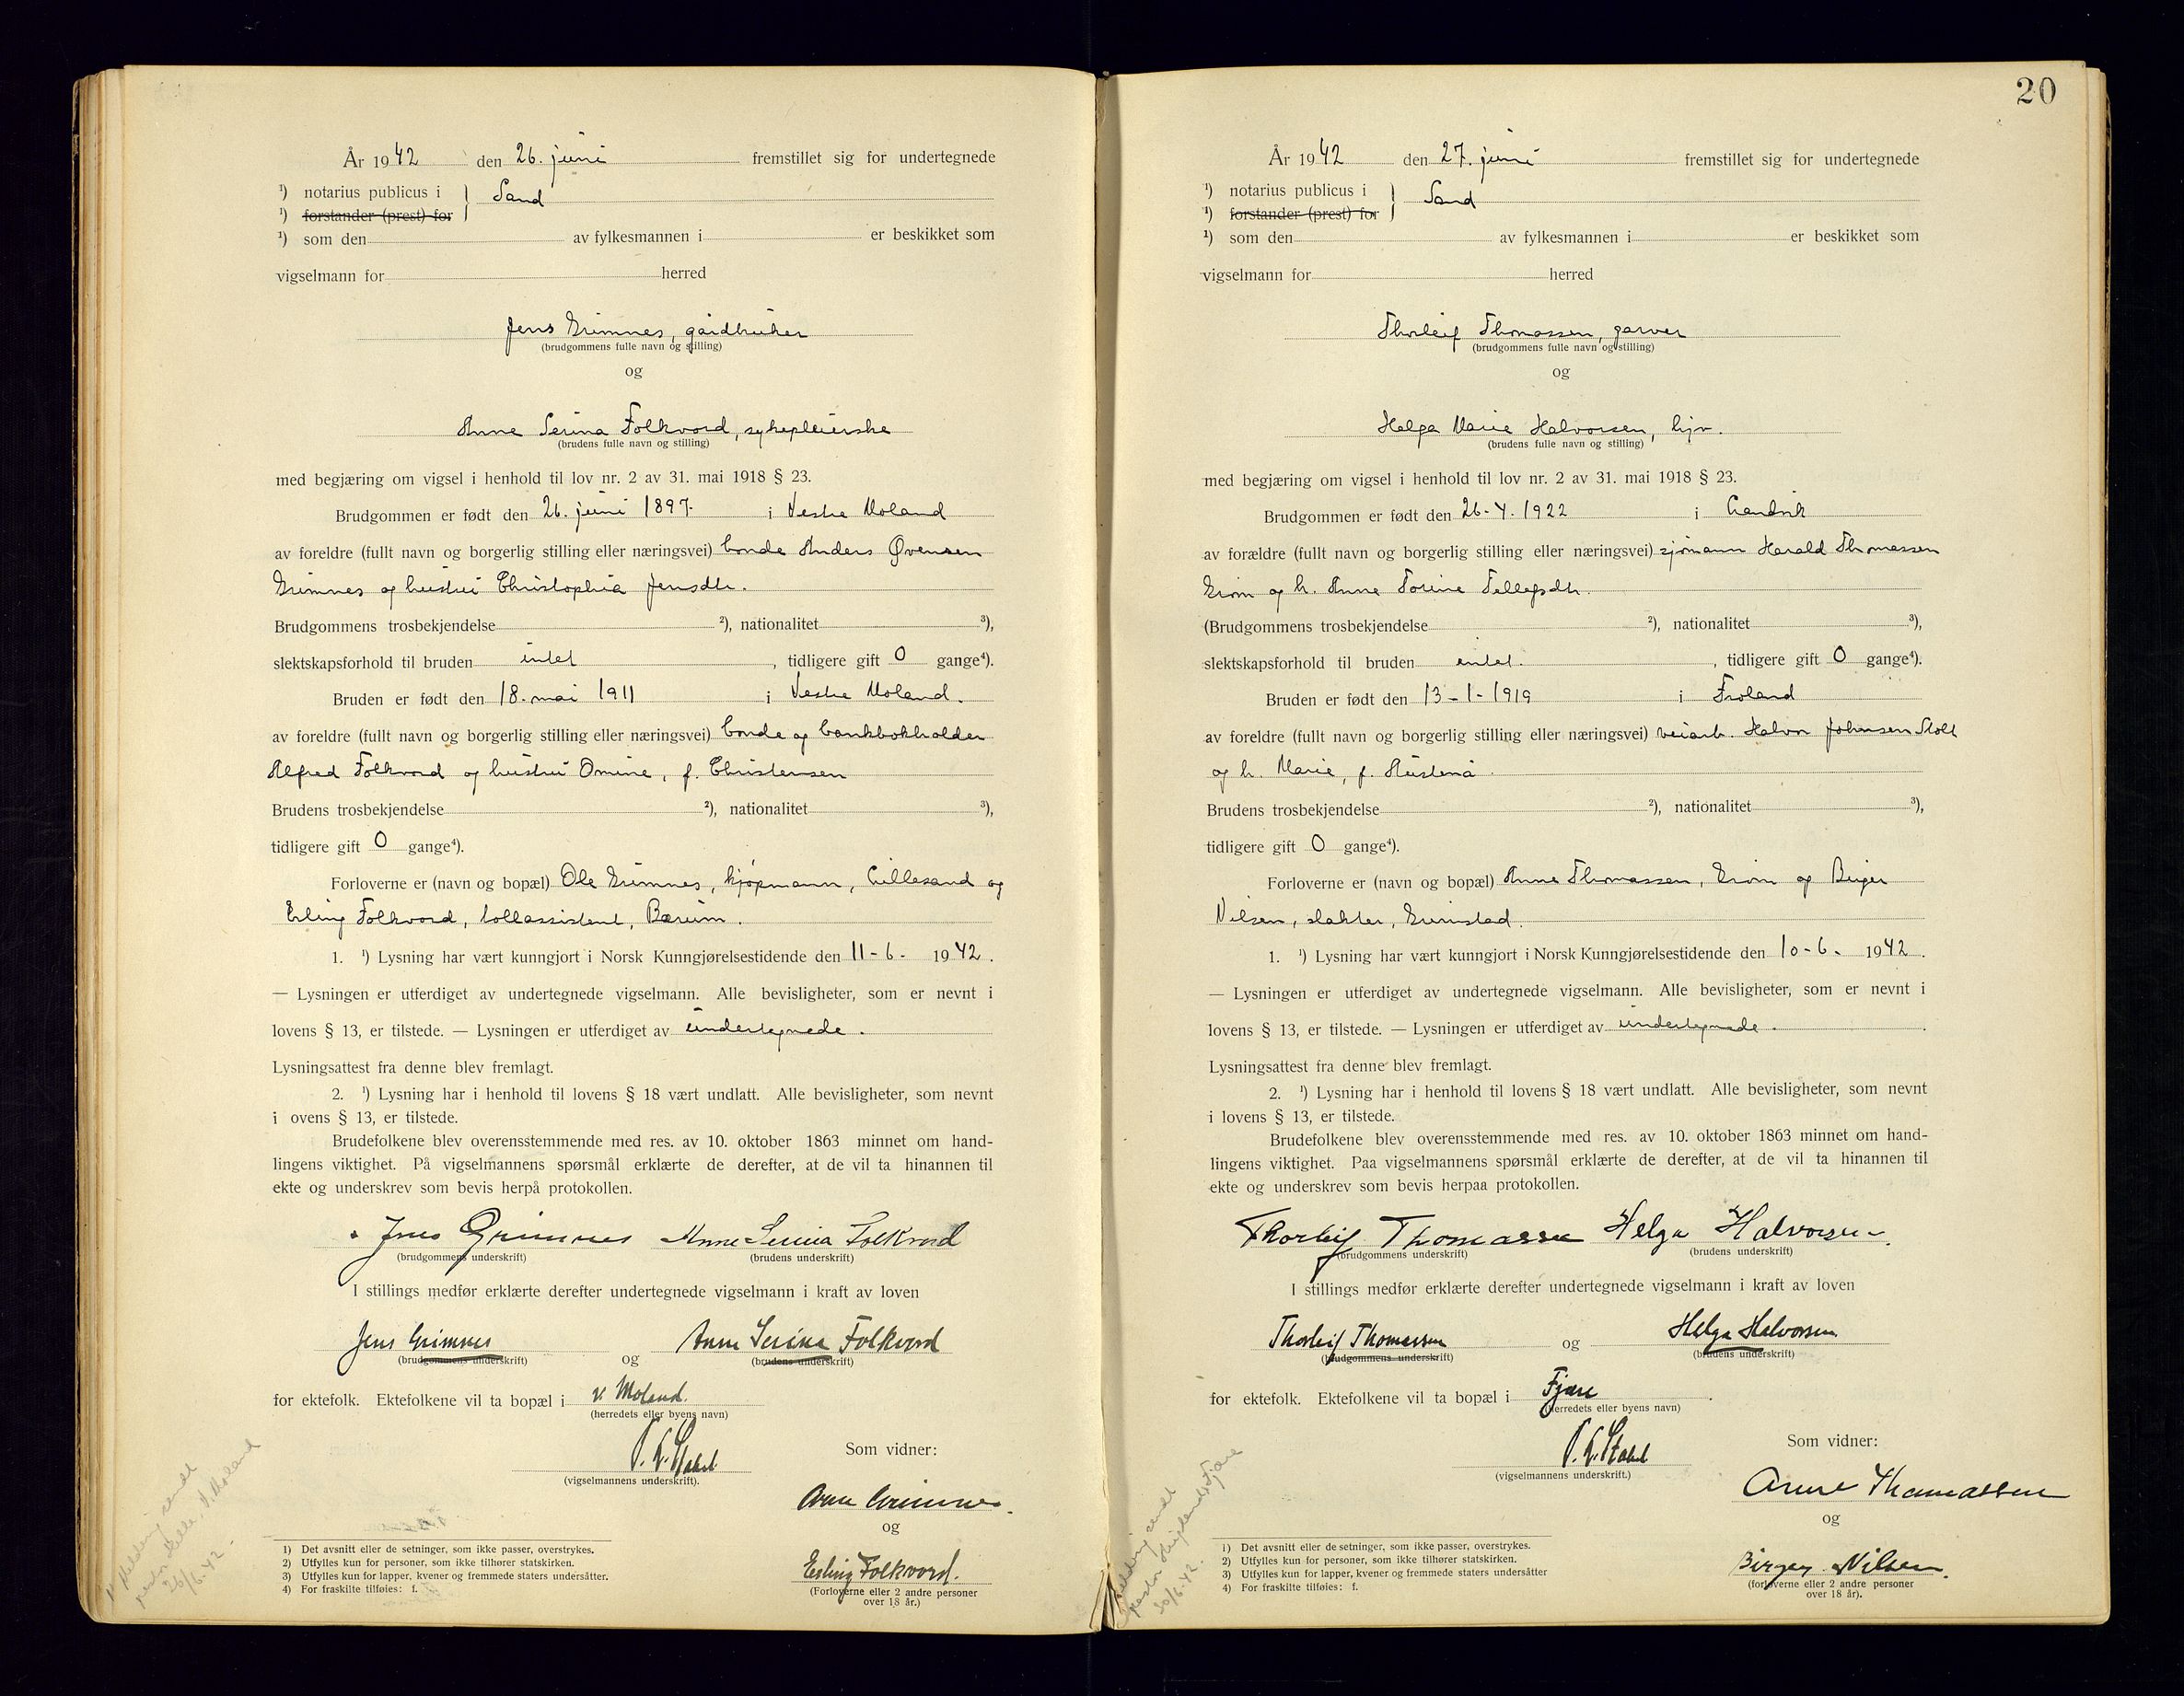 År 1942 den 26. juni fremstillet sig for undertegnede
¹) notarius publicus i } Sand
¹) forstander (prest) for
¹) som den av fylkesmannen i er beskikket som
vigselmann for herred
Jens Grimnes, gårdbruker
(brudgommens fulle navn og stilling)
og
Anne Serina Folkvord, sykepleierske
(brudens fulle navn og stilling)
med begjæring om vigsel i henhold til lov nr. 2 av 31. mai 1918 § 23.
Brudgommen er født den 26. juni 1897 i Vestre Moland
av foreldre (fullt navn og borgerlig stilling eller næringsvei) bonde Anders Øvensen
Grimnes og hustru Christophia Jensdtr.
Brudgommens trosbekjendelse ²), nationalitet ³),
slektskapsforhold til bruden intet, tidligere gift 0 gange⁴).
Bruden er født den 18. mai 1911 i Vestre Moland.
av foreldre (fullt navn og borgerlig stilling eller næringsvei) bonde og bankbokholder
Alfred Folkvord og hustru Omine, f. Christensen
Brudens trosbekjendelse ²), nationalitet ³),
tidligere gift 0 gange⁴).
Forloverne er (navn og bopæl) Ole Grimnes, kjøpmann, Lillesand og
Erling Folkvord, tollassistent, Bærum.
1. ¹) Lysning har vært kunngjort i Norsk Kunngjørelsestidende den 11-6- 1942.
— Lysningen er utferdiget av undertegnede vigselmann. Alle bevisligheter, som er nevnt i
lovens § 13, er tilstede. — Lysningen er utferdiget av undertegnede.
Lysningsattest fra denne blev fremlagt.
2. ¹) Lysning har i henhold til lovens § 18 vært undlatt. Alle bevisligheter, som nevnt
i ovens § 13, er tilstede.
Brudefolkene blev overensstemmende med res. av 10. oktober 1863 minnet om hand-
lingens viktighet. På vigselmannens spørsmål erklærte de derefter, at de vil ta hinannen til
ekte og underskrev som bevis herpå protokollen.
Jens Grimnes Anne Serina Folkvord
(brudgommens underskrift) (brudens underskrift)
I stillings medfør erklærte derefter undertegnede vigselmann i kraft av loven
Jens Grimnes og Anne Serina Folkvord
(brudgommens underskrift) (brudens underskrift)
for ektefolk. Ektefolkene vil ta bopæl i V. Moland.
(herredets eller byens navn)
(vigselmannens underskrift).
Som vidner:
Grimnes
og
Erling Folkvord.
(Forloverne eller 2 andre personer
over 18 år.)
1) Det avsnitt eller de setninger, som ikke passer, overstrykes.
2) Utfylles kun for personer, som ikke tilhører statskirken.
3) Utfylles kun for lapper, kvener og fremmede staters undersåtter.
4) For fraskilte tilføies: f.
Melding sendt
V. Moland
26/6.42.
20
År 1942 den 27. juni fremstillet sig for undertegnede
¹) notarius publicus i } Sand
¹) forstander (prest) for
¹) som den av fylkesmannen i er beskikket som
vigselmann for herred
Thorleif Thomassen, garver
(brudgommens fulle navn og stilling)
og
Helga Marie Halvorsen, hjv.
(brudens fulle navn og stilling)
med begjæring om vigsel i henhold til lov nr. 2 av 31. mai 1918 § 23.
Brudgommen er født den 26-4-1922 i Landvik
av forældre (fullt navn og borgerlig stilling eller næringsvei) sjømann Harald Thomassen
Grom og h. Anne Torine Tellefsdtr.
(Brudgommens trosbekjendelse ²), nationalitet ³),
slektskapsforhold til bruden intet., tidligere gift 0 gange⁴).
Bruden er født den 13-1-1919 i Froland
av foreldre (fullt navn og borgerlig stilling eller næringsvei) veiarb. Halvor Johnsen
og h. Marie, f.
Brudens trosbekjendelse ²), nationalitet ³),
tidligere gift 0 gange⁴).
Forloverne er (navn og bopæl) Anne Thomassen, Grom og Birger
Nilsen, slakter, Grimstad.
1. ¹) Lysning har vært kunngjort i Norsk Kunngjørelsestidende den 10-6- 1942.
— Lysningen er utferdiget av undertegnede vigselmann. Alle bevisligheter, som er nevnt i
lovens § 13, er tilstede. — Lysningen er utferdiget av undertegnede.
Lysningsattest fra denne blev fremlagt.
2. ¹) Lysning har i henhold til lovens § 18 vært undlatt. Alle bevisligheter, som nevnt
i lovens § 13, er tilstede.
Brudefolkene blev overensstemmende med res. av 10. oktober 1863 minnet om hand-
lingens viktighet. Paa vigselmannens spørsmål erklærte de derefter, at de vil ta hinannen til
ekte og underskrev som bevis herpaa protokollen.
Thorleif Thomassen Helga Halvorsen
(brudgommens underskrift) (brudens underskrift)
I stillings medfør erklærte derefter undertegnede vigselmann i kraft av loven
Thorleif Thomassen og Helga Halvorsen
(brudgommens underskrift) (brudens underskrift)
for ektefolk. Ektefolkene vil ta bopæl i Fjære
(herredets eller byens navn)
(vigselmannens underskrift.)
Som vidner:
Anne Thomassen
og
Birger Nilsen.
(forloverne eller 2 andre personer
over 18 år).
1) Det avsnitt eller de setninger, som ikke passer, overstrykes.
2) Utfylles kun for personer, som ikke tilhører statskirken.
3) Utfylles kun for lapper, kvener og fremmede staters undersåtter
4) For fraskilte tilføies: f.
Melding sendt
Fjære
30/6.42.